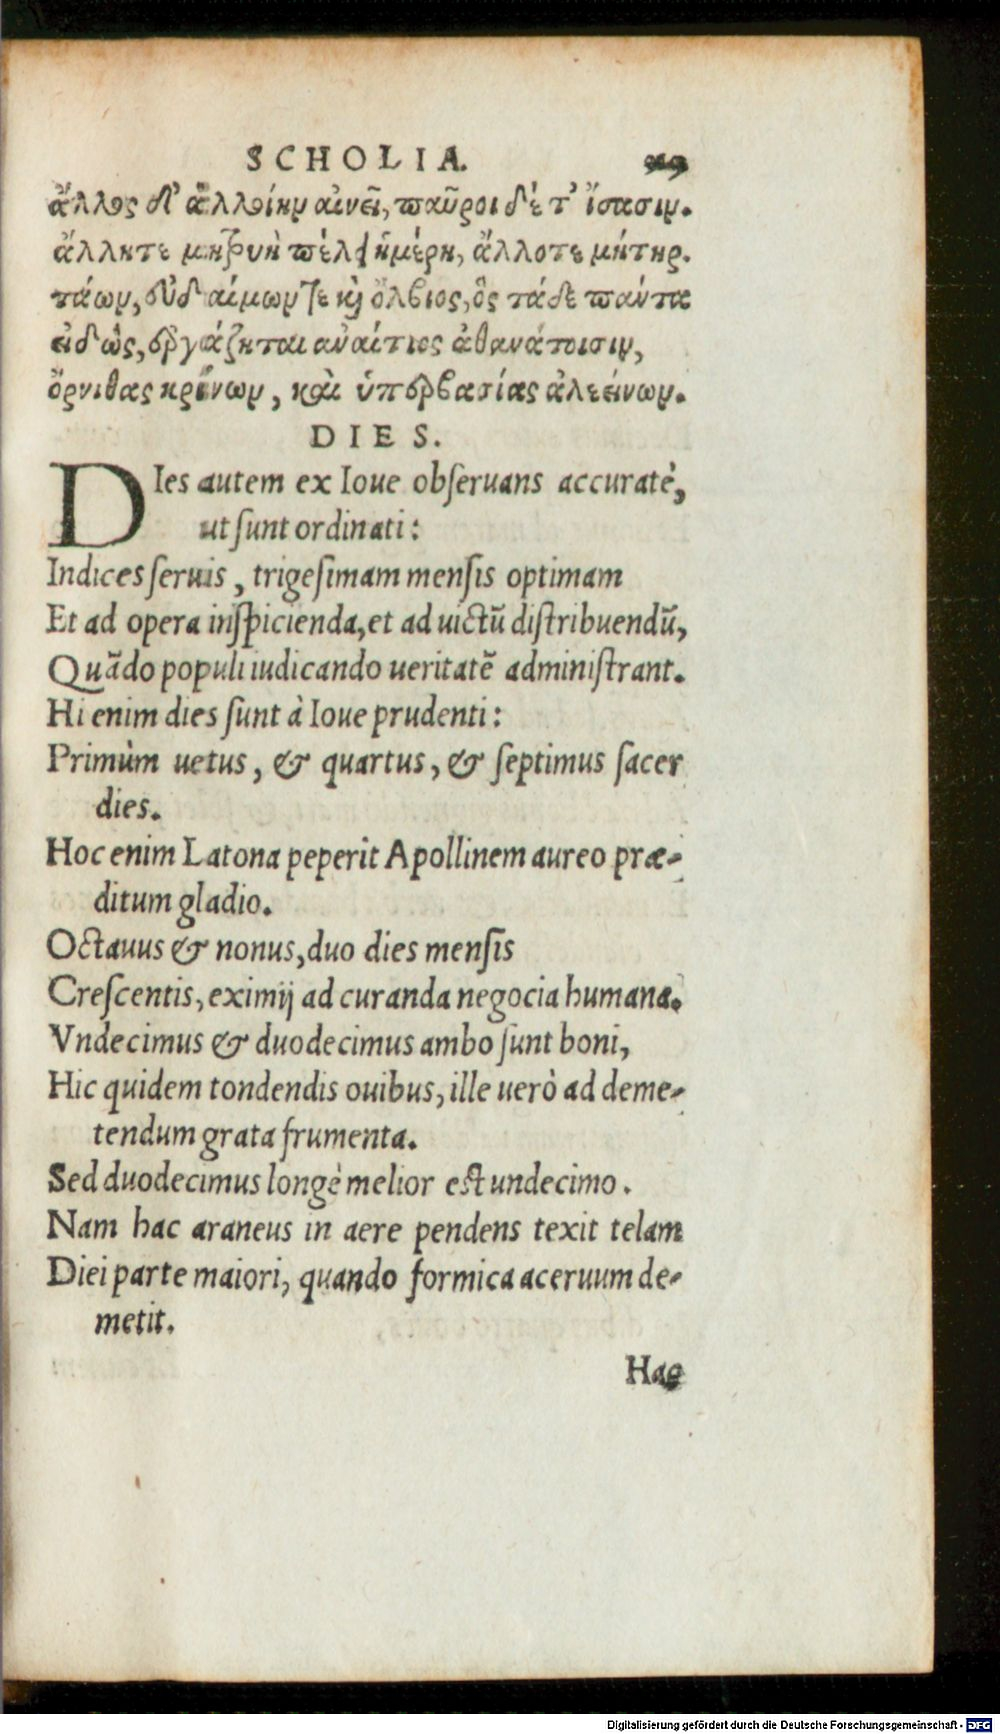 SCHOLIA.
ἄλλος δ' ἀλλοίην αἰνεῖ, παῦροι δέ τ' ἴσασιν.
ἄλλητε μητρυιὴ πέλει ἡμέρη, ἄλλοτε μήτηρ.
τάων, εὐδαίμων τε καὶ ὄλβιος, ὃς τάδε πάντα
εἰδὼς, ἐργάζηται ἀναίτιος ἀθανάτοισιν,
ὄρνιθας κρίνων, καὶ ὑπερβασίας ἀλεείνων.
DIES.
DIes autem ex Ioue obſeruans accuratè,
ut ſunt ordinati:
Indices ſeruis, trigeſimam menſis optimam
Et ad opera inſpicienda, et ad uictũ diſtribuendũ,
Quãdo populi iudicando ueritatẽ adminiſtrant.
Hi enim dies ſunt à Ioue prudenti:
Primùm uetus, & quartus, & ſeptimus ſacer
dies.
Hoc enim Latona peperit Apollinem aureo præ-
ditum gladio.
Octauus & nonus, duo dies menſis
Creſcentis, eximij ad curanda negocia humana.
Vndecimus & duodecimus ambo ſunt boni,
Hic quidem tondendis ouibus, ille uerò ad deme-
tendum grata frumenta.
Sed duodecimus longè melior eſt undecimo.
Nam hac araneus in aere pendens texit telam
Diei parte maiori, quando formica aceruum de-
metit.
Hac
Digitalisierung gefördert durch die Deutsche Forschungsgemeinschaft - DFG